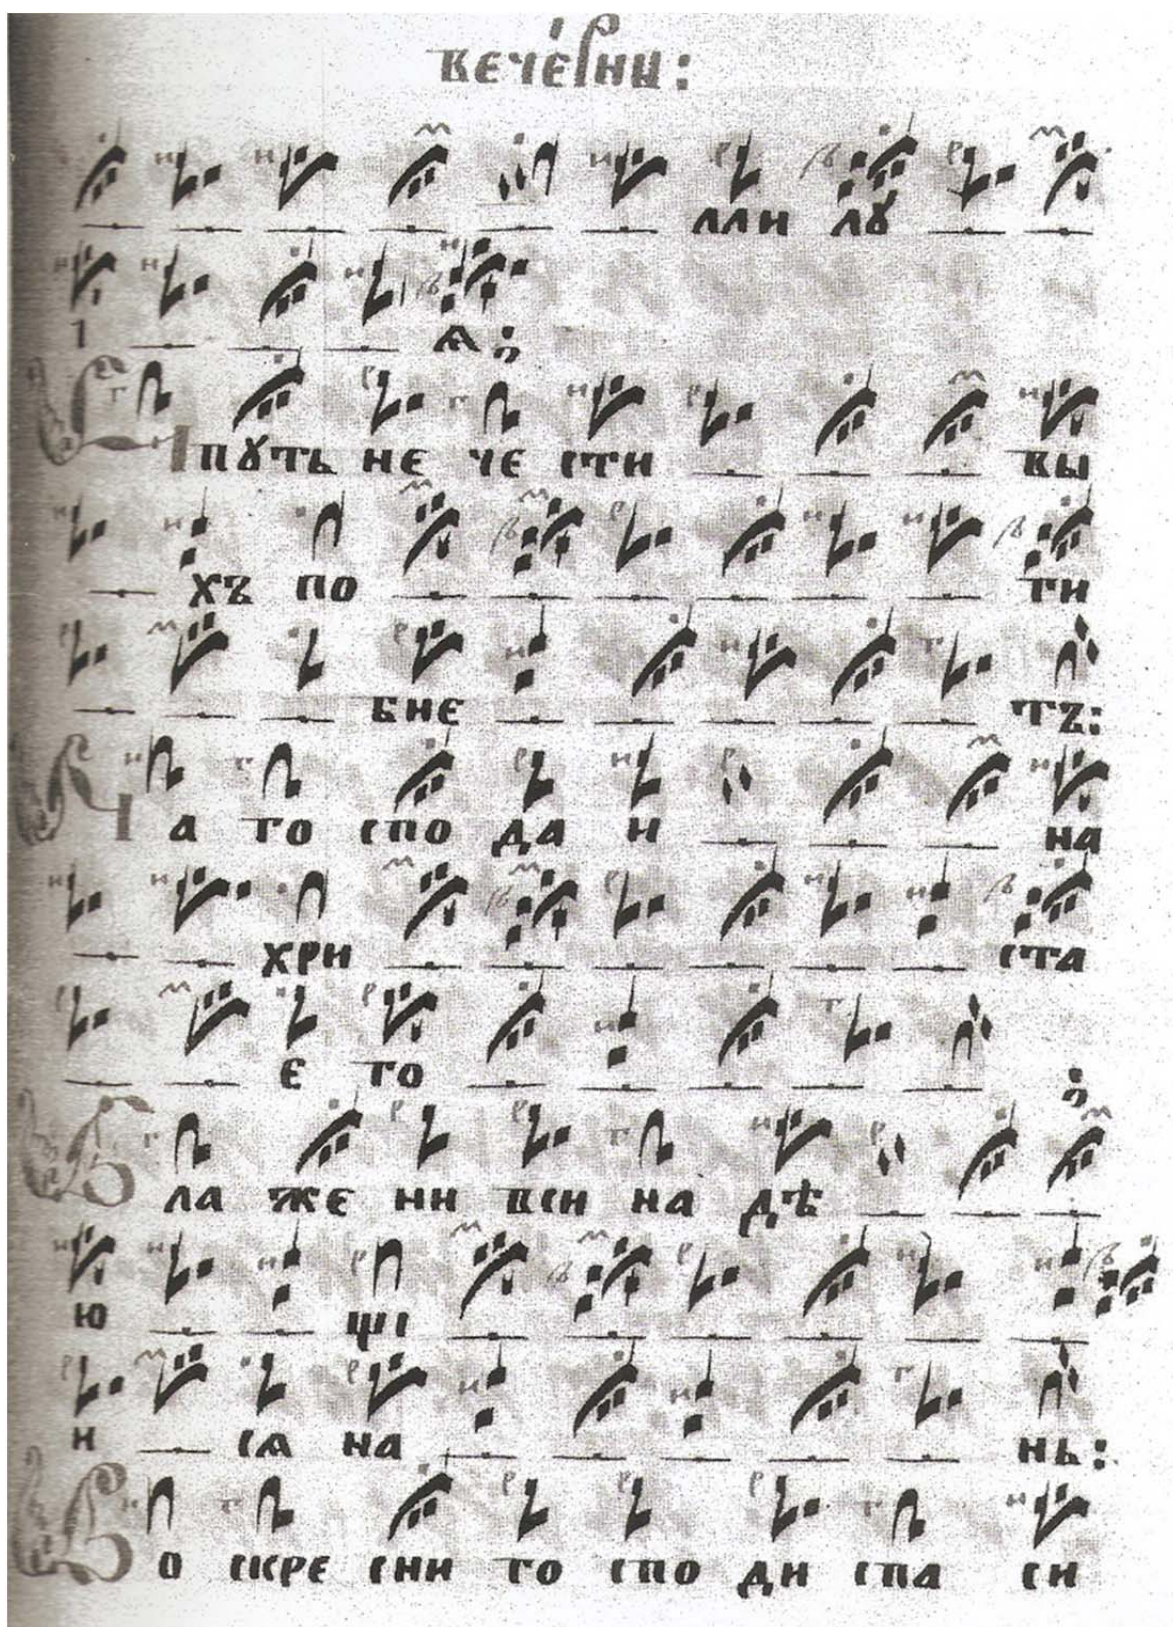 вече́рни:
лли лꙋ
ı ѧ ;
И пꙋть не че сти вы
хъ по ги
бне тъ:
На го спо да и на
хри ста
е го ;
Бла же ни вси на дѣ
ю щı
и сѧ на нь:
Во скре сни го спо ди спа си